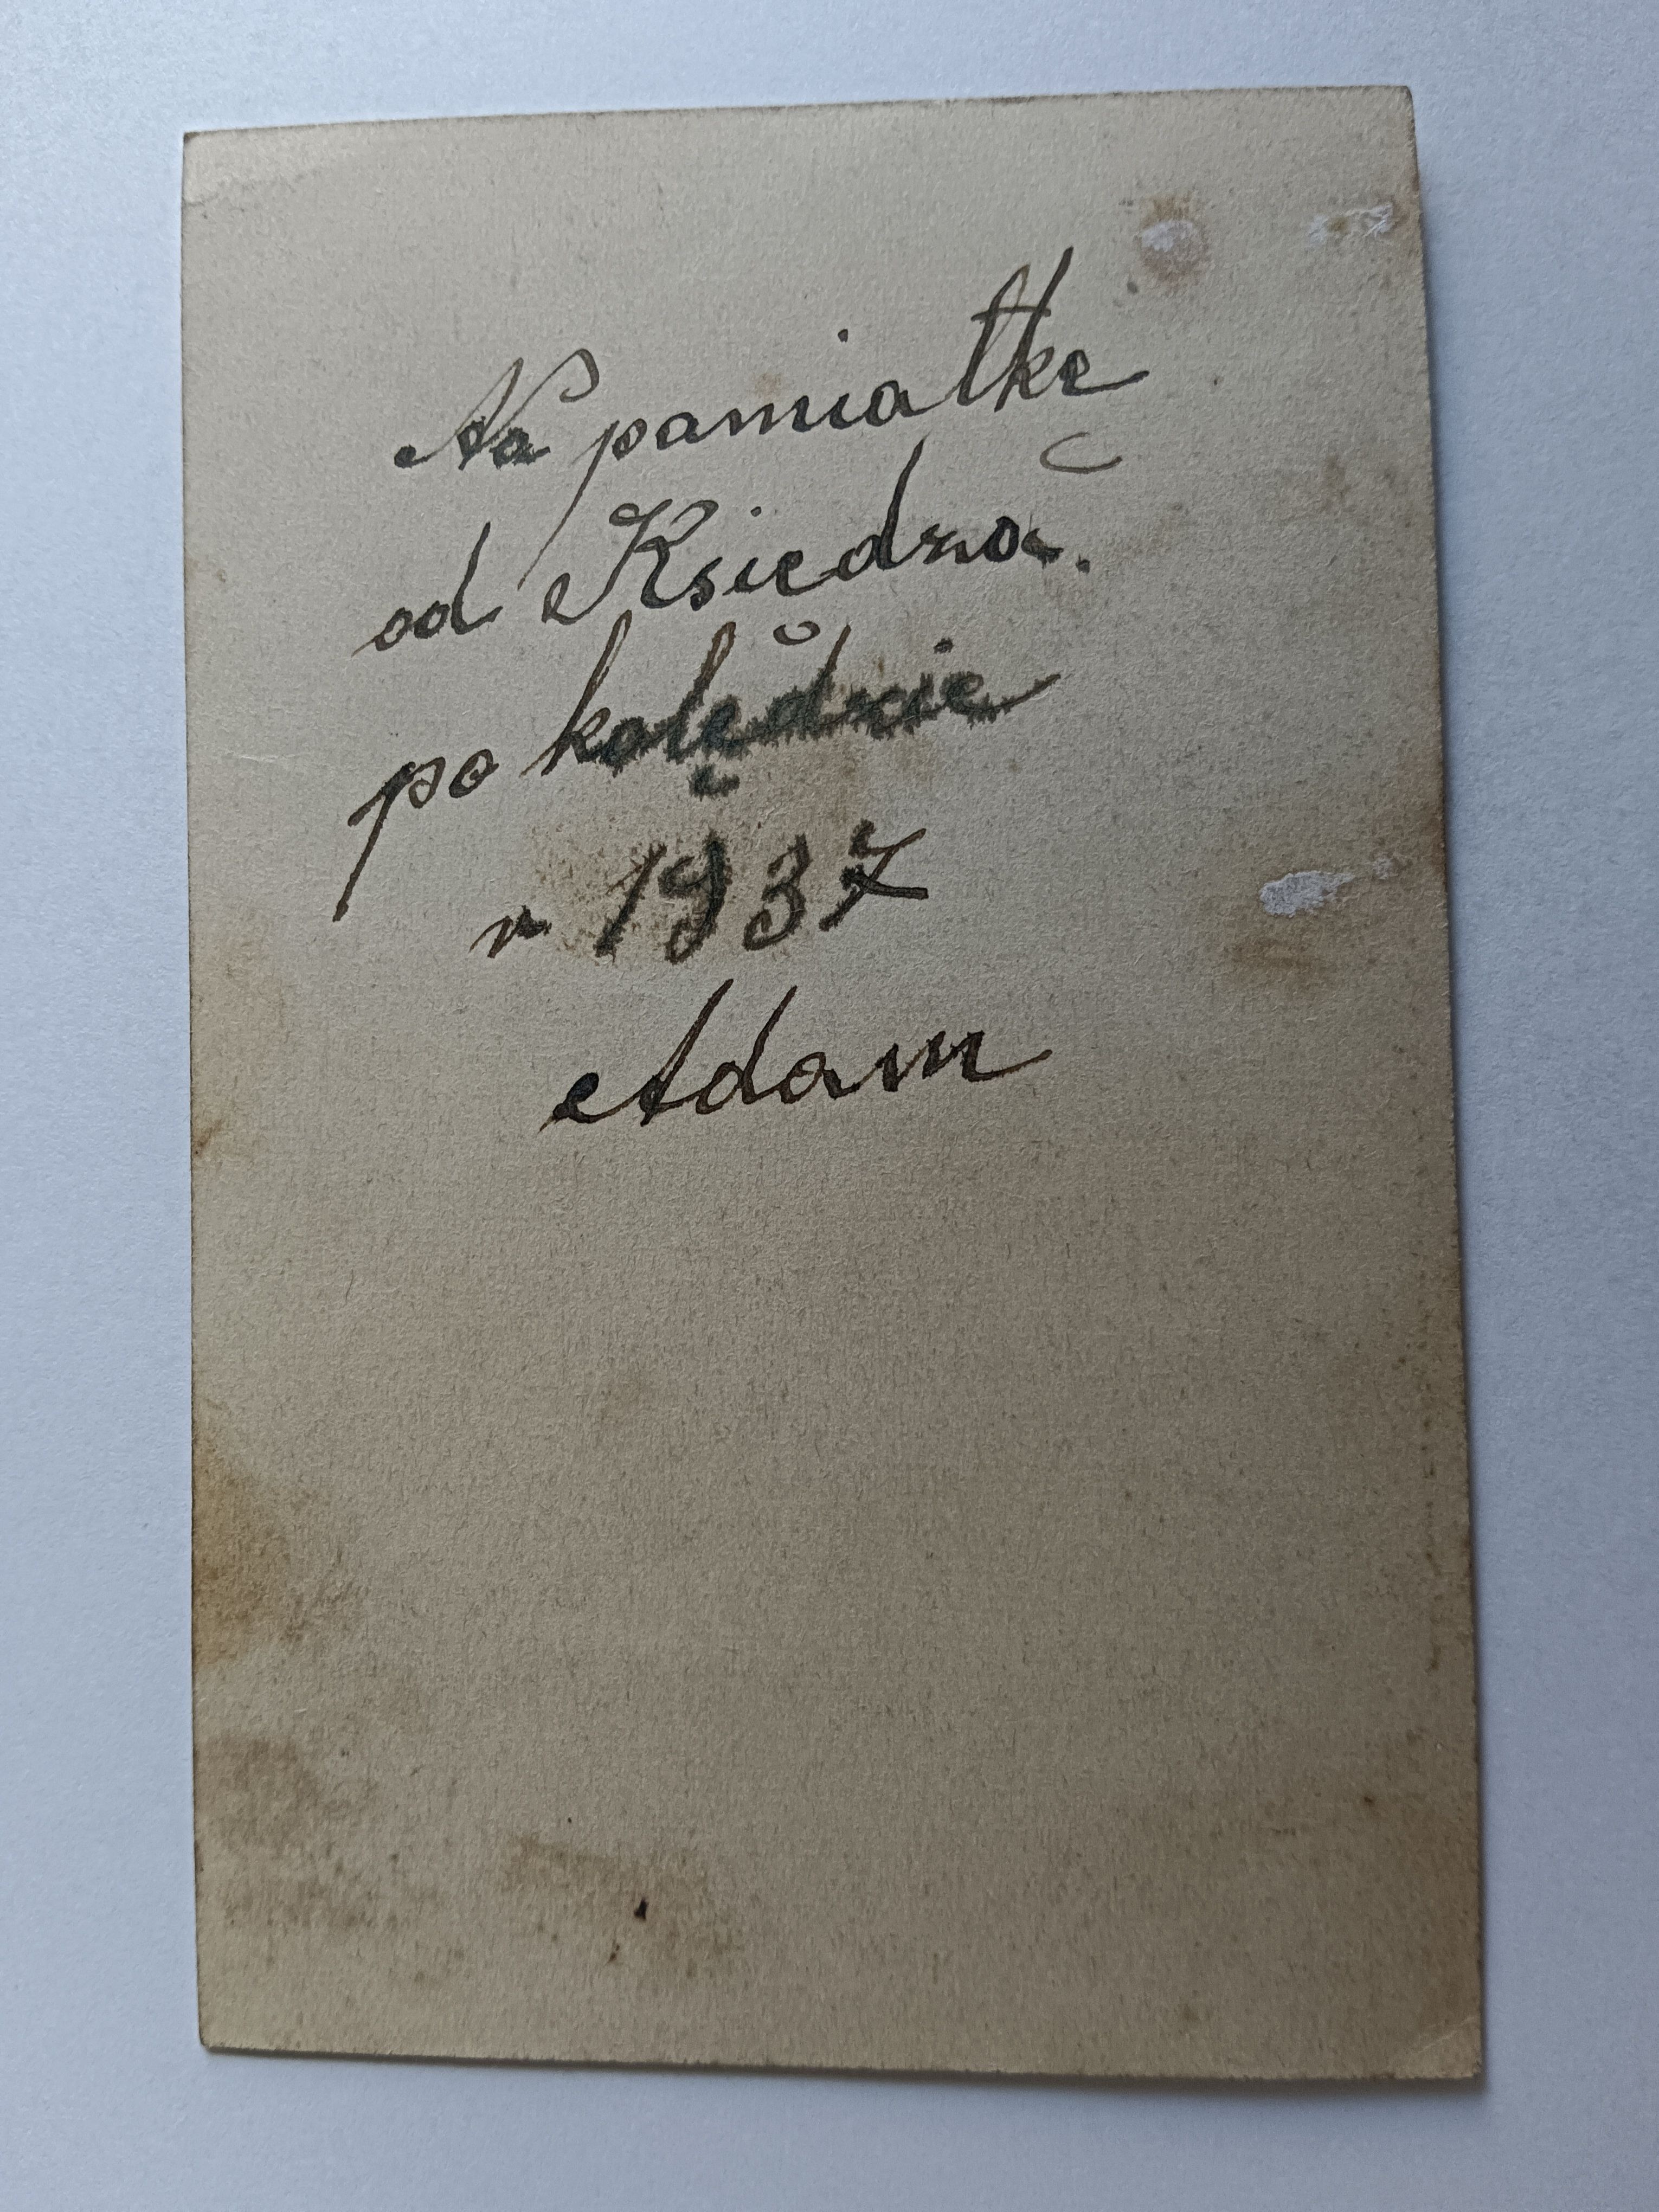 Na pamiatkę
od Księdza.
po kolędzie
r 1937
Adam